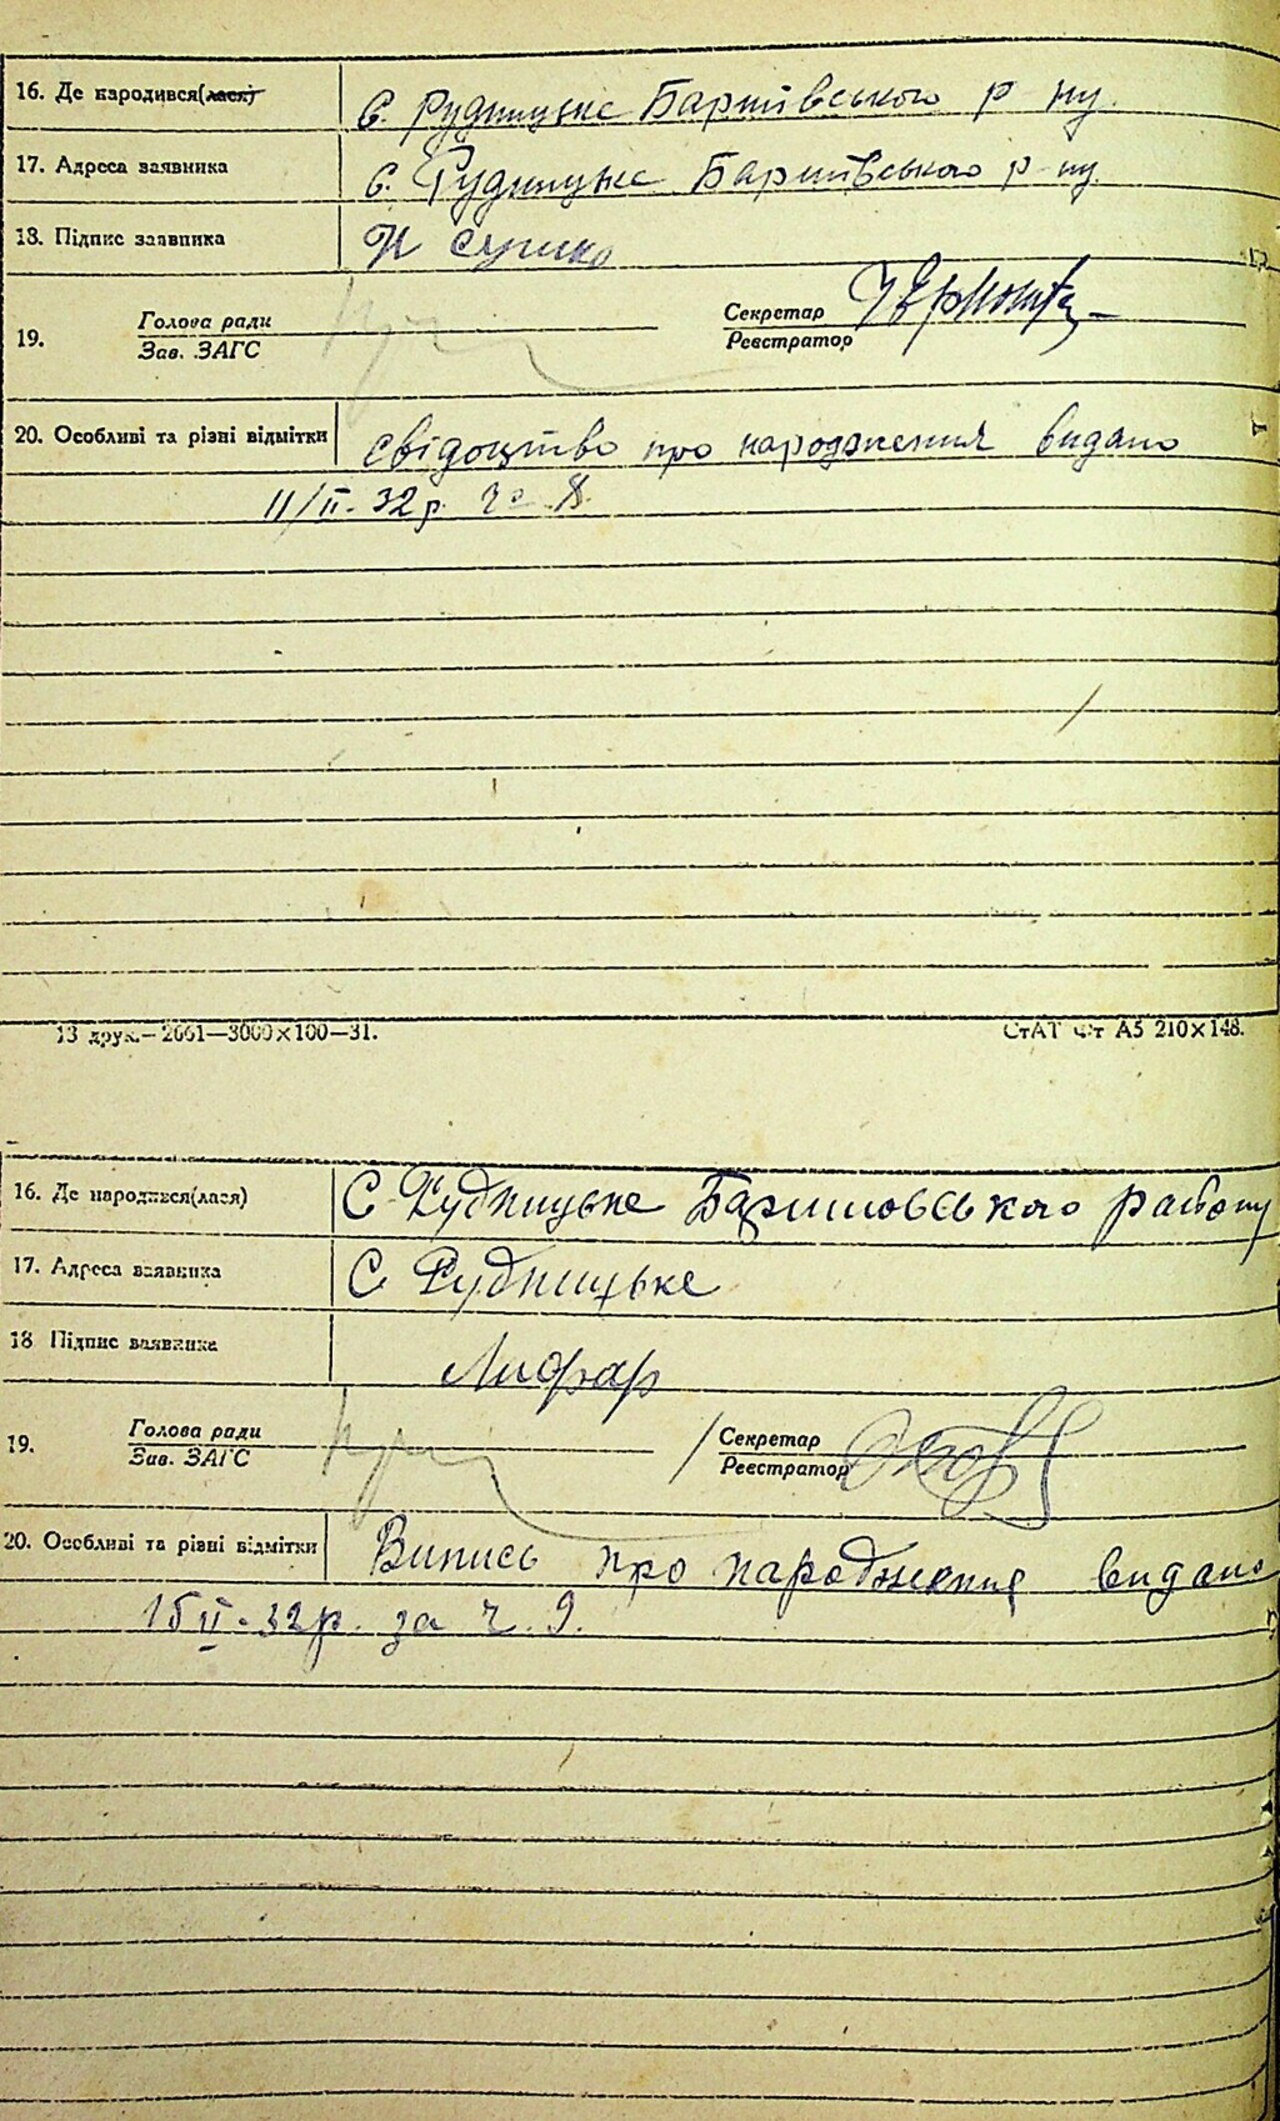 16. Де народився(лася) с. Рудницьке Баршівського р-ну.
17. Адреса заявника с. Рудницьке Баршівського р-ну.
18. Підпис заявника
19. Голова ради Секретар
Зав. ЗАГС Реєстратор
20. Особливі та різні відмітки свідоцтво про народження видано
11/II-32р. 8.
13 друк.—2661—3000×100—31. А5 210×148.
16. Де народився(лася) С Рудницьке району
17. Адреса заявника С Рудницьке
18 Підпис заявника Лифар
19. Голова ради Секретар
Зав. ЗАГС Реєстратор
20. Особливі та різні відмітки Випись про народження видано
15 II-32р. за ч. 9.